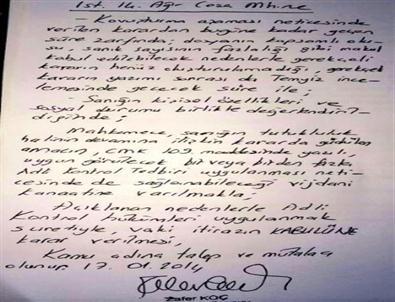 İst. 14. Ağır Ceza Mhk.ne
- Kovuşturma aşaması neticesinde
verilen karardan bugüne kadar geçen
süre zarfında, dosyanın kapsamlı olu-
su, sanık sayısının fazlalığı gibi makul
kabul edilebilecek nedenlerle gerekçeli
kararın henüz oluşturulamadığı, gerekçeli
kararın yazımı sonrası da Temyiz ince-
lemesinde geçecek süre ile;
- Sanığın kişisel özellikleri ve
sosyal durumu birlikte değerlendiril-
diğinde;
Mahkemece, sanığın tutukluluk
halinin devamına ilişkin kararda güdülen
amacın CMK 109 maddesinde yazılı,
uygun görülecek bir veya birden fazla
Adli Kontrol Tedbiri uygulanması neti-
cesinde de sağlanabileceği vijdani
kanaatine varılmakla,
Açıklanan nedenlerle Adli
Kontrol hükümleri uygulanmak
suretiyle, vaki itirazın KABULÜNE
karar verilmesi,
Kamu adına talep ve mütalaa
olunur. 17.01.2014
Zafer KOÇ